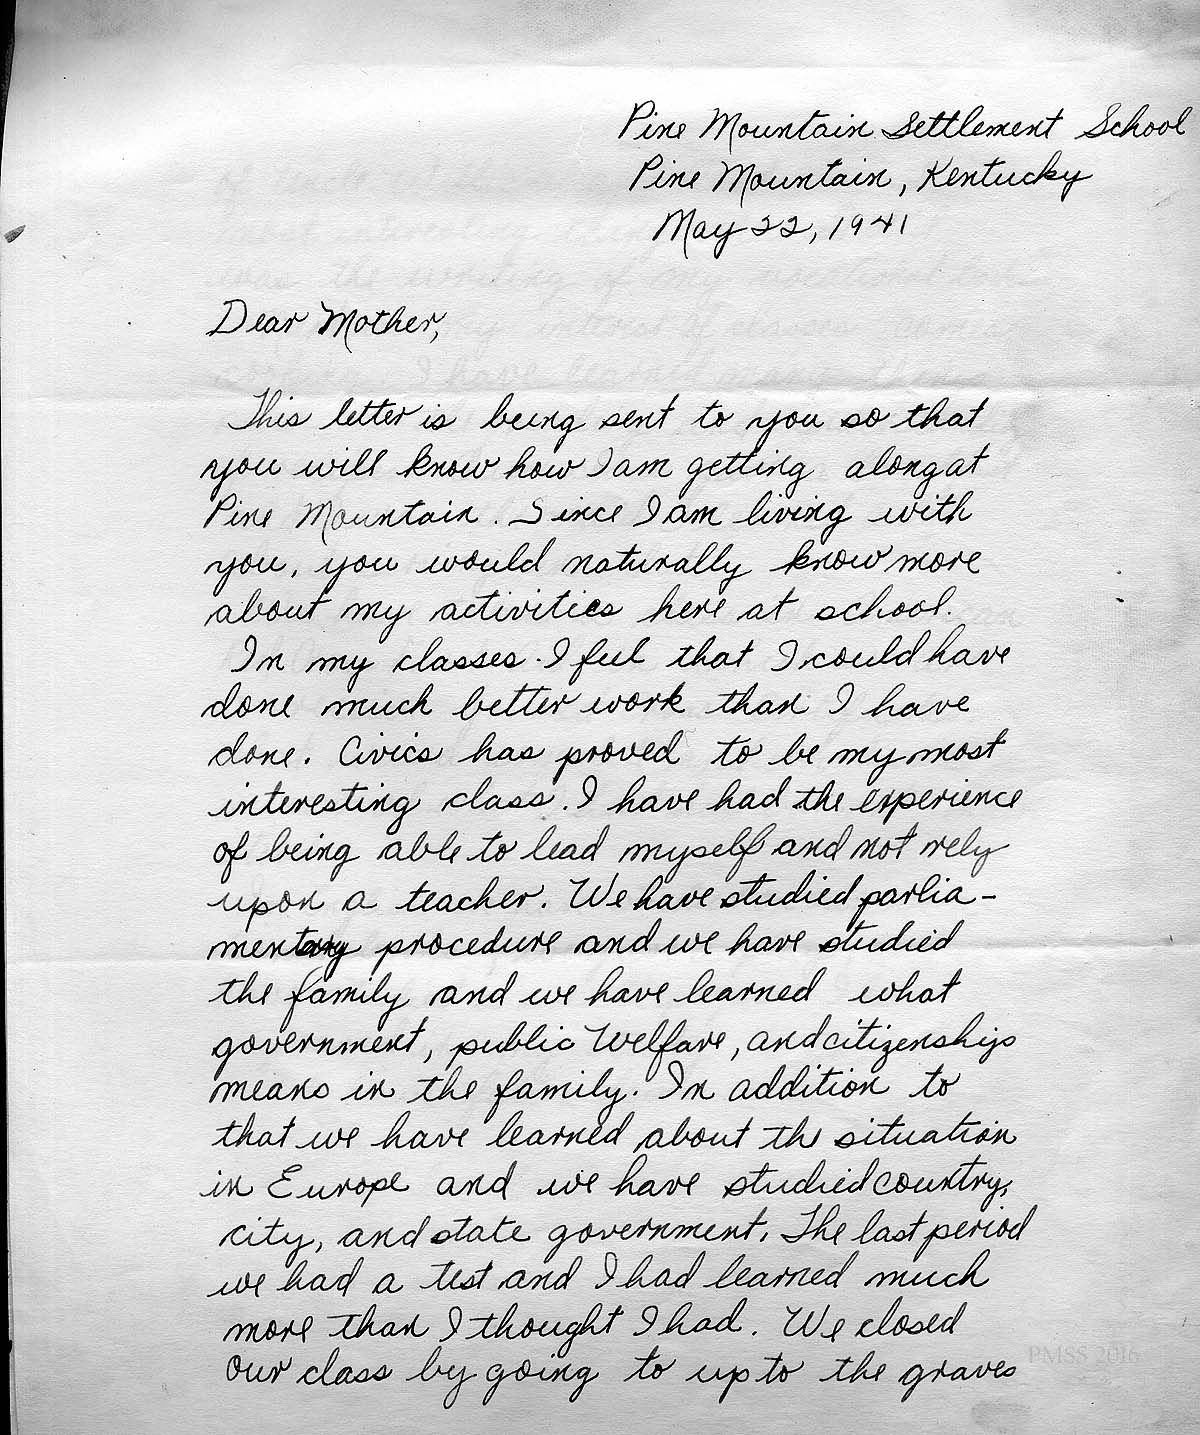 Pine Mountain Settlement School
Pine Mountain, Kentucky
May 22, 1941
Dear Mother,
This letter is being sent to you so that
you will know how I am getting along at
Pine Mountain. Since I am living with
you, you would naturally know more
about my activities here at school.
In my classes I feel that I could have
done much better work than I have
done. Civics has proved to be my most
interesting class. I have had the experience
of being able to lead myself and not rely
upon a teacher. We have studied parlia-
mentary procedure and we have studied
the family and we have learned what
government, public Welfare, and citizenship
means in the family. In addition to
that we have learned about th situation
in Europe and we have studied country,
city, and state government. The last period
we had a test and I had learned much
more than I thought I had. We closed
our class by going to up to the graves
PMSS 2016